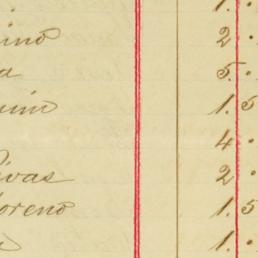 1.
ino 2.
a 5.
uin 1.5
4.
Rivas 2.
oreno 1.5
a 1.